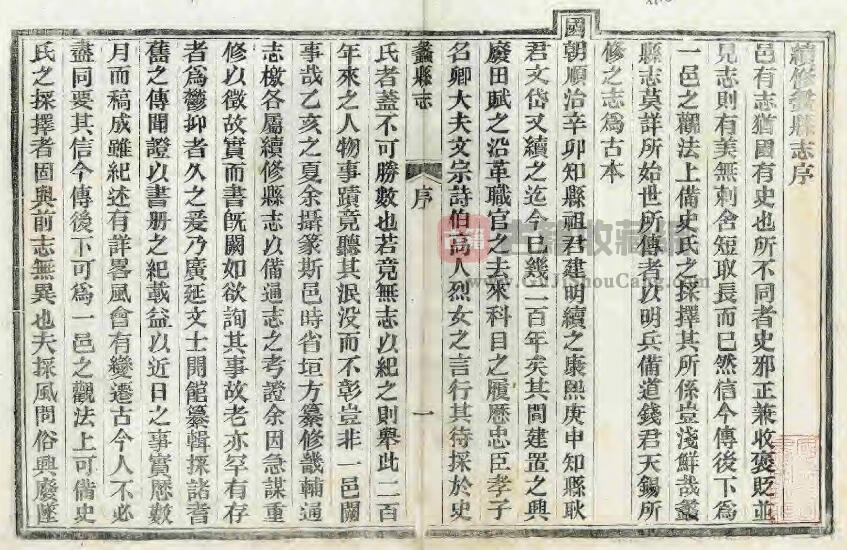 續修蠡縣志序
邑有志猶國有史也所不同者史邪正兼收褒貶並
見志則有美無刺舍短取長而已然信今傳後下爲
一邑之觀法上備史氏之採擇其所係豈淺鮮哉蠡
縣志莫詳所始世所傳者以明兵備道錢君天錫所
修之志爲古本
國朝順治辛卯知縣祖君建明續之康熙庚申知縣耿
君文岱又續之迄今已幾二百年矣其間建置之興
廢田賦之沿革職官之去來科目之履歷忠臣孝子
名卿大夫文宗詩伯高人烈女之言行其待採於史
蠡縣志 序 一
氏者蓋不可勝數也若竟無志以紀之則舉此二百
年來之人物事蹟竟聽其泯没而不彰豈非一邑闕
事哉乙亥之夏余攝篆斯邑時省垣方纂修畿輔通
志檄各屬續修縣志以備通志之考證余因急謀重
修以徵故實而書旣闕如欲詢其事故老亦罕有存
者爲鬱抑者久之爰乃廣延文士開館纂輯採諸耆
舊之傳聞證以書册之紀載益以近日之事實歷數
月而稿成雖紀述有詳畧風會有變遷古今人不必
盡同要其信今傳後下可爲一邑之觀法上可備史
氏之採擇者固與前志無異也夫採風問俗興廢墜
古籍
www.GuJiShouCang.com